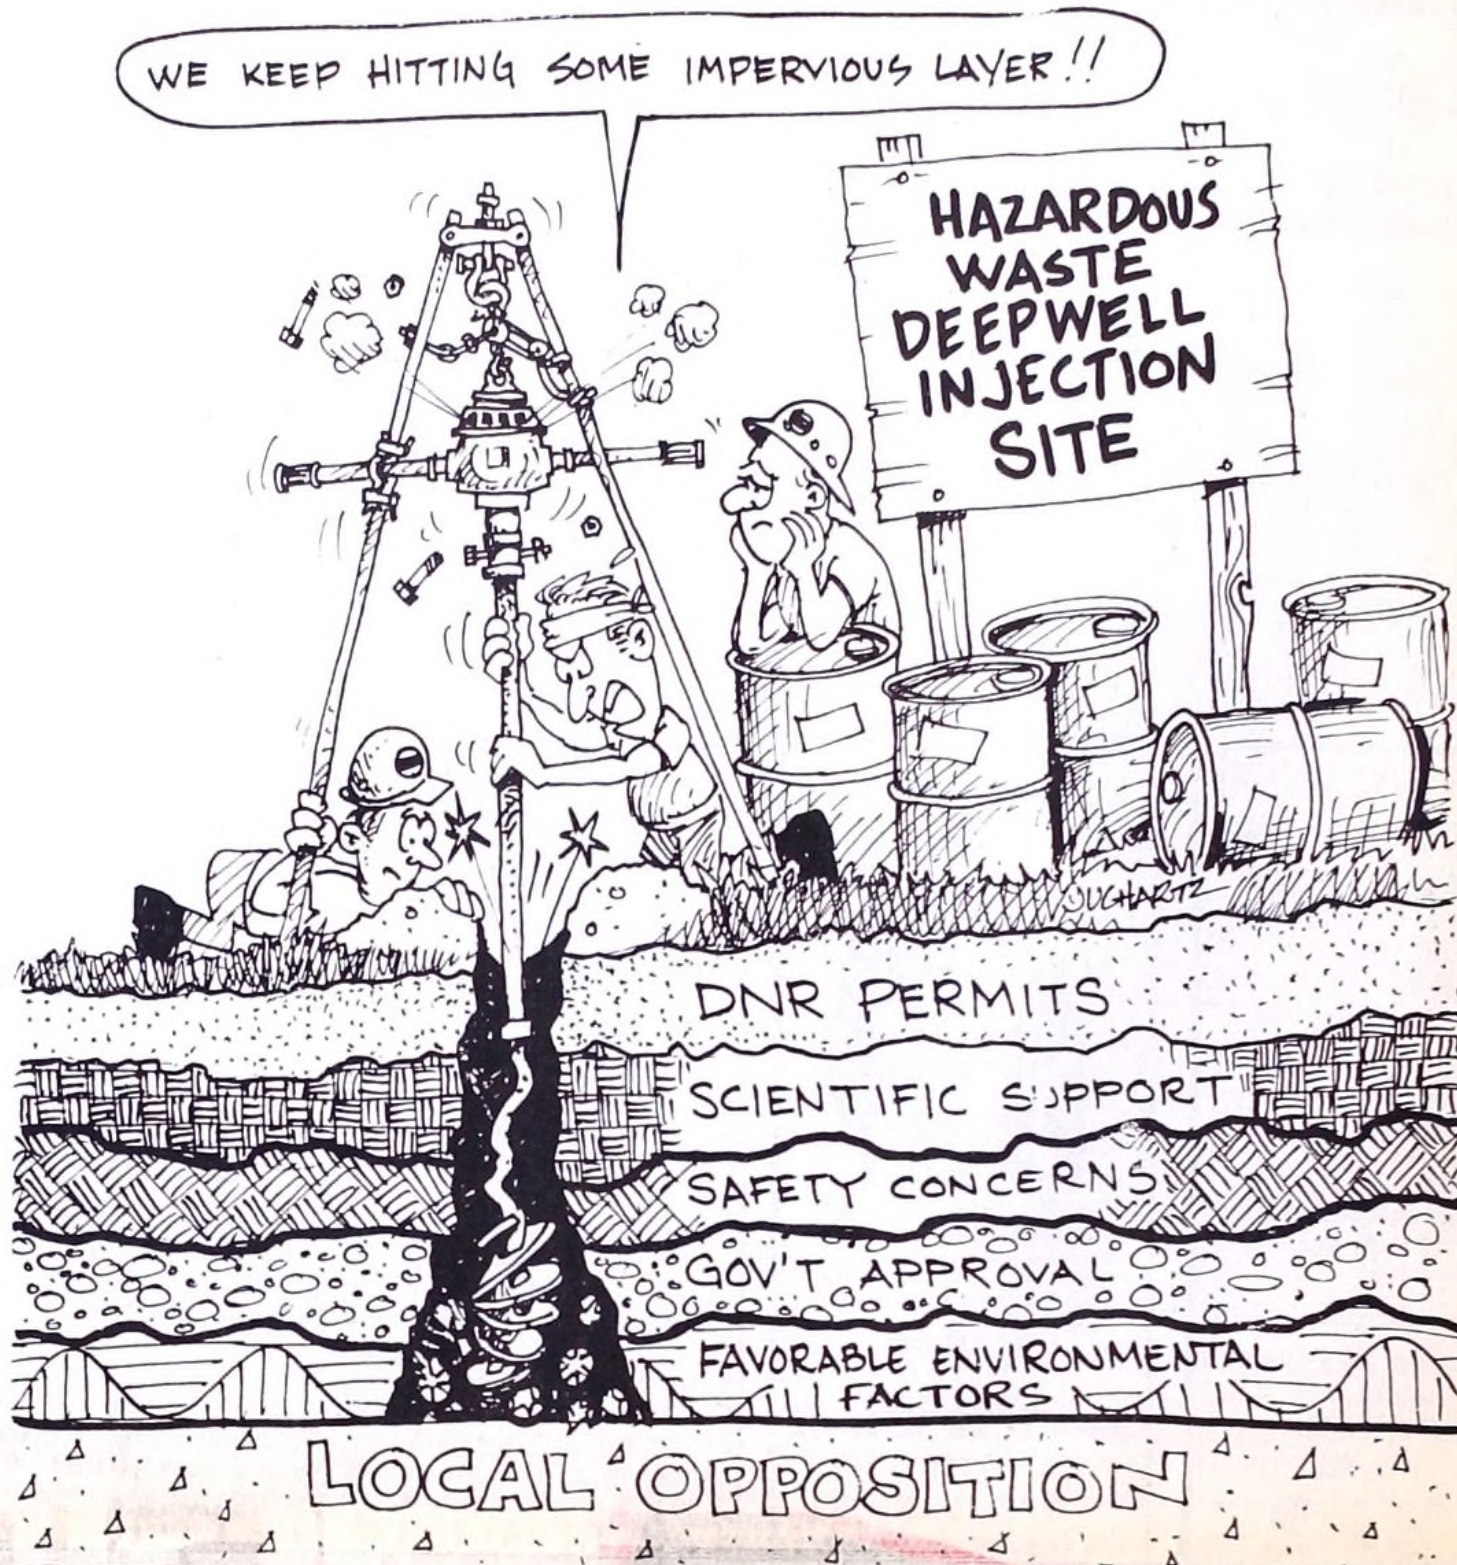 WE KEEP HITTING SOME IMPERVIOUS LAYER!!
HAZARDOUS
WASTE
DEEPWELL
INJECTION
SITE
DNR PERMITS
SCIENTIFIC SUPPORT
SAFETY CONCERNS
GOV'T APPROVAL
FAVORABLE ENVIRONMENTAL
FACTORS
LOCAL OPPOSITION